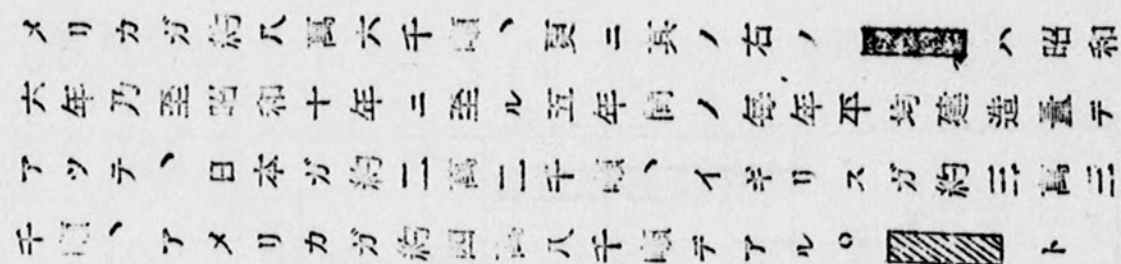 メリカガ約八萬六千噸、更ニ其ノ右ノ ハ昭和
六年乃至昭和十年ニ至ル五年間ノ每年平均建造量デ
アツテ、日本ガ約二萬二千噸、イギリスガ約三萬三
千噸、アメリカガ約四萬八千噸デアル。 ト